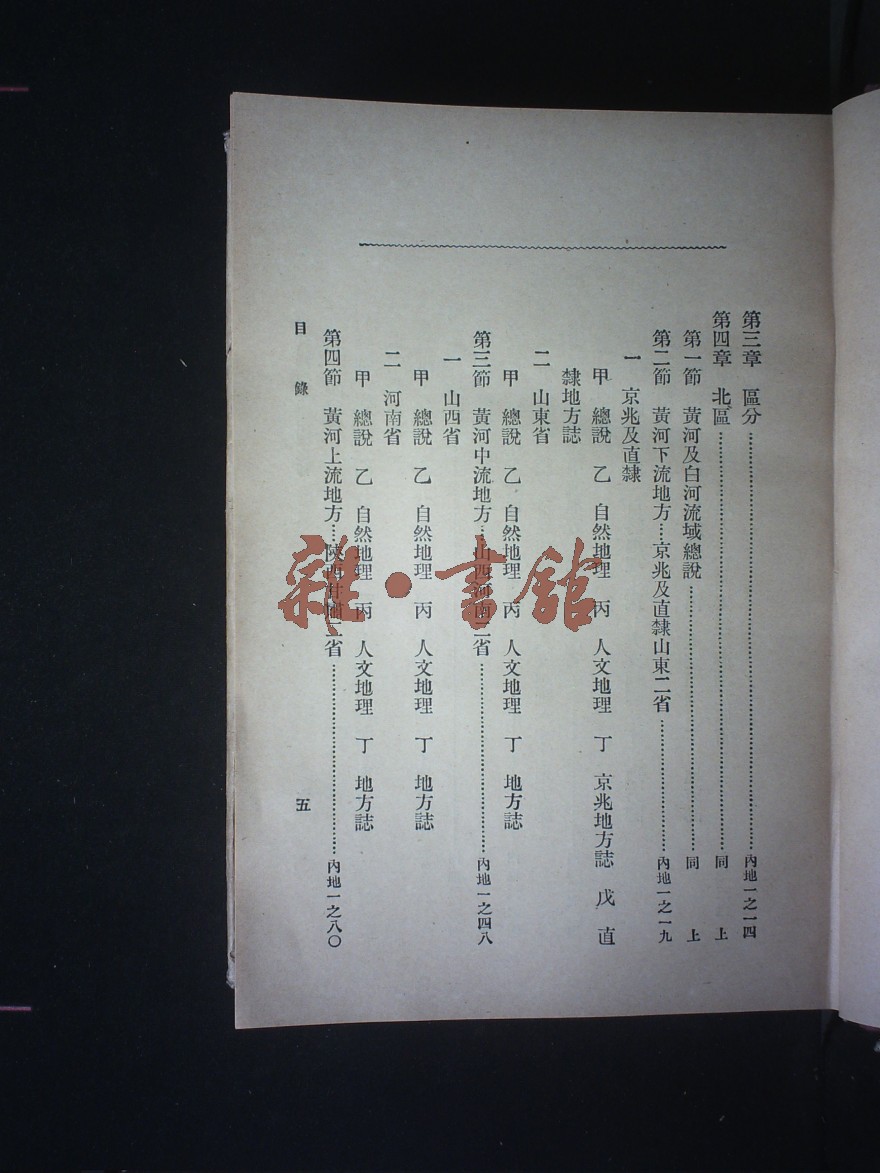 第三章 區分……內地一之一四
第四章 北區……同上
第一節 黃河及白河流域總說……同上
第二節 黃河下流地方…京兆及直隸山東二省……內地一之一九
一 京兆及直隸
甲 總說 乙 自然地理 丙 人文地理 丁 京兆地方誌 戊 直
隸地方誌
二 山東省
甲 總說 乙 自然地理 丙 人文地理 丁 地方誌
第三節 黃河中流地方…山西河南二省……內地一之四八
一 山西省
甲 總說 乙 自然地理 丙 人文地理 丁 地方誌
二 河南省
甲 總說 乙 自然地理 丙 人文地理 丁 地方誌
第四節 黃河上流地方…陝西甘肅二省……內地一之八〇
目錄 五
雜·書館